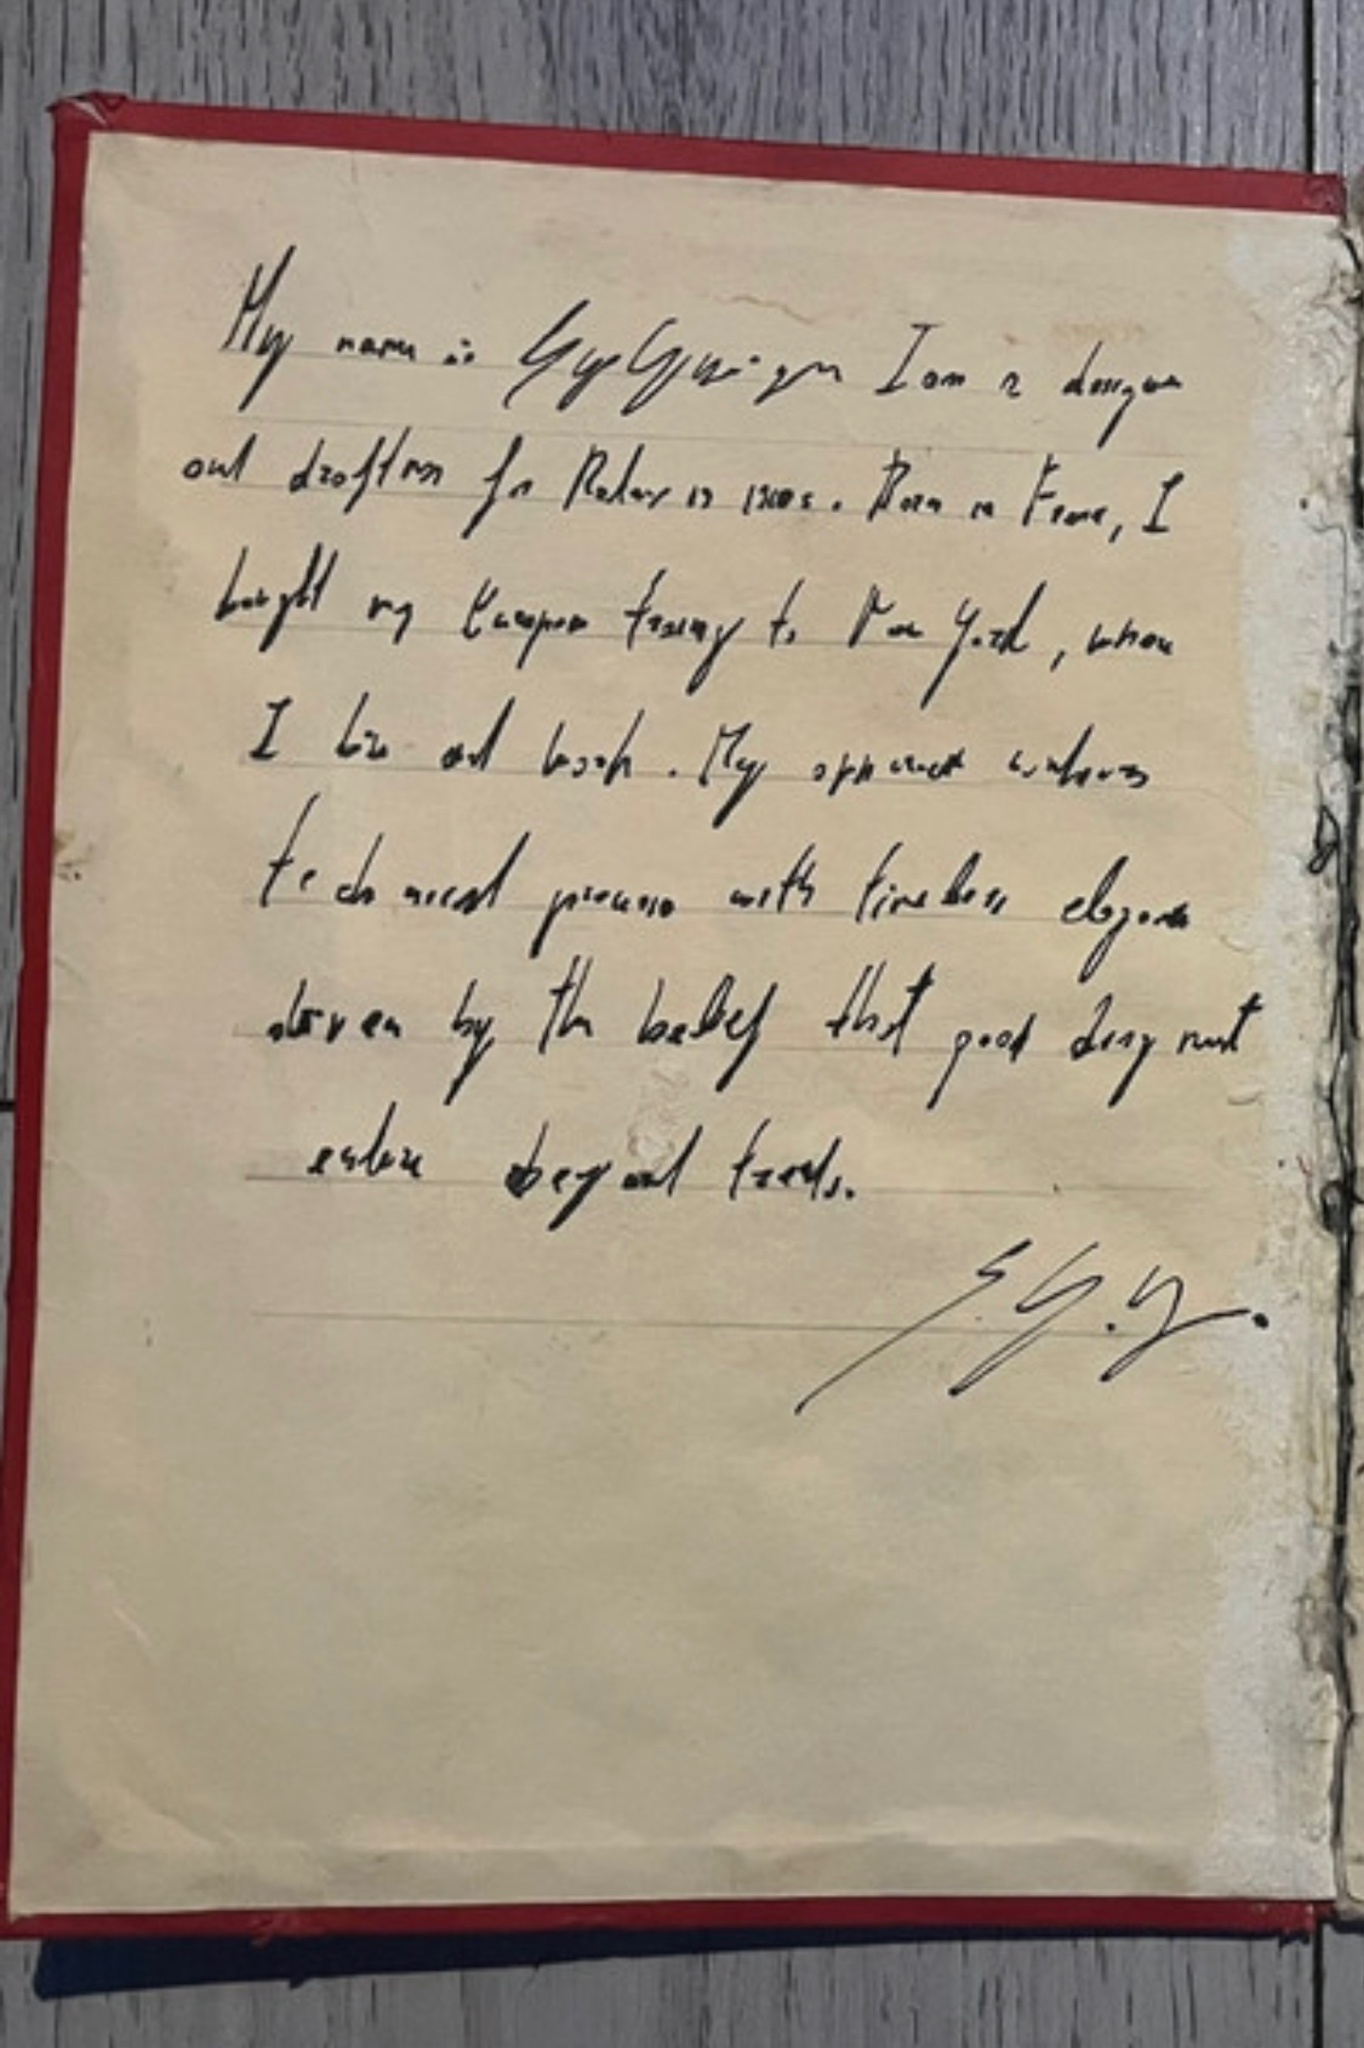 My name is I am a designer
and draftsman for Rolex in 1950s. Born in France, I
brought my European training to New York, where
I live and work. My approach
technical precision with timeless elegance
driven by the belief that good design must
endure beyond trends.